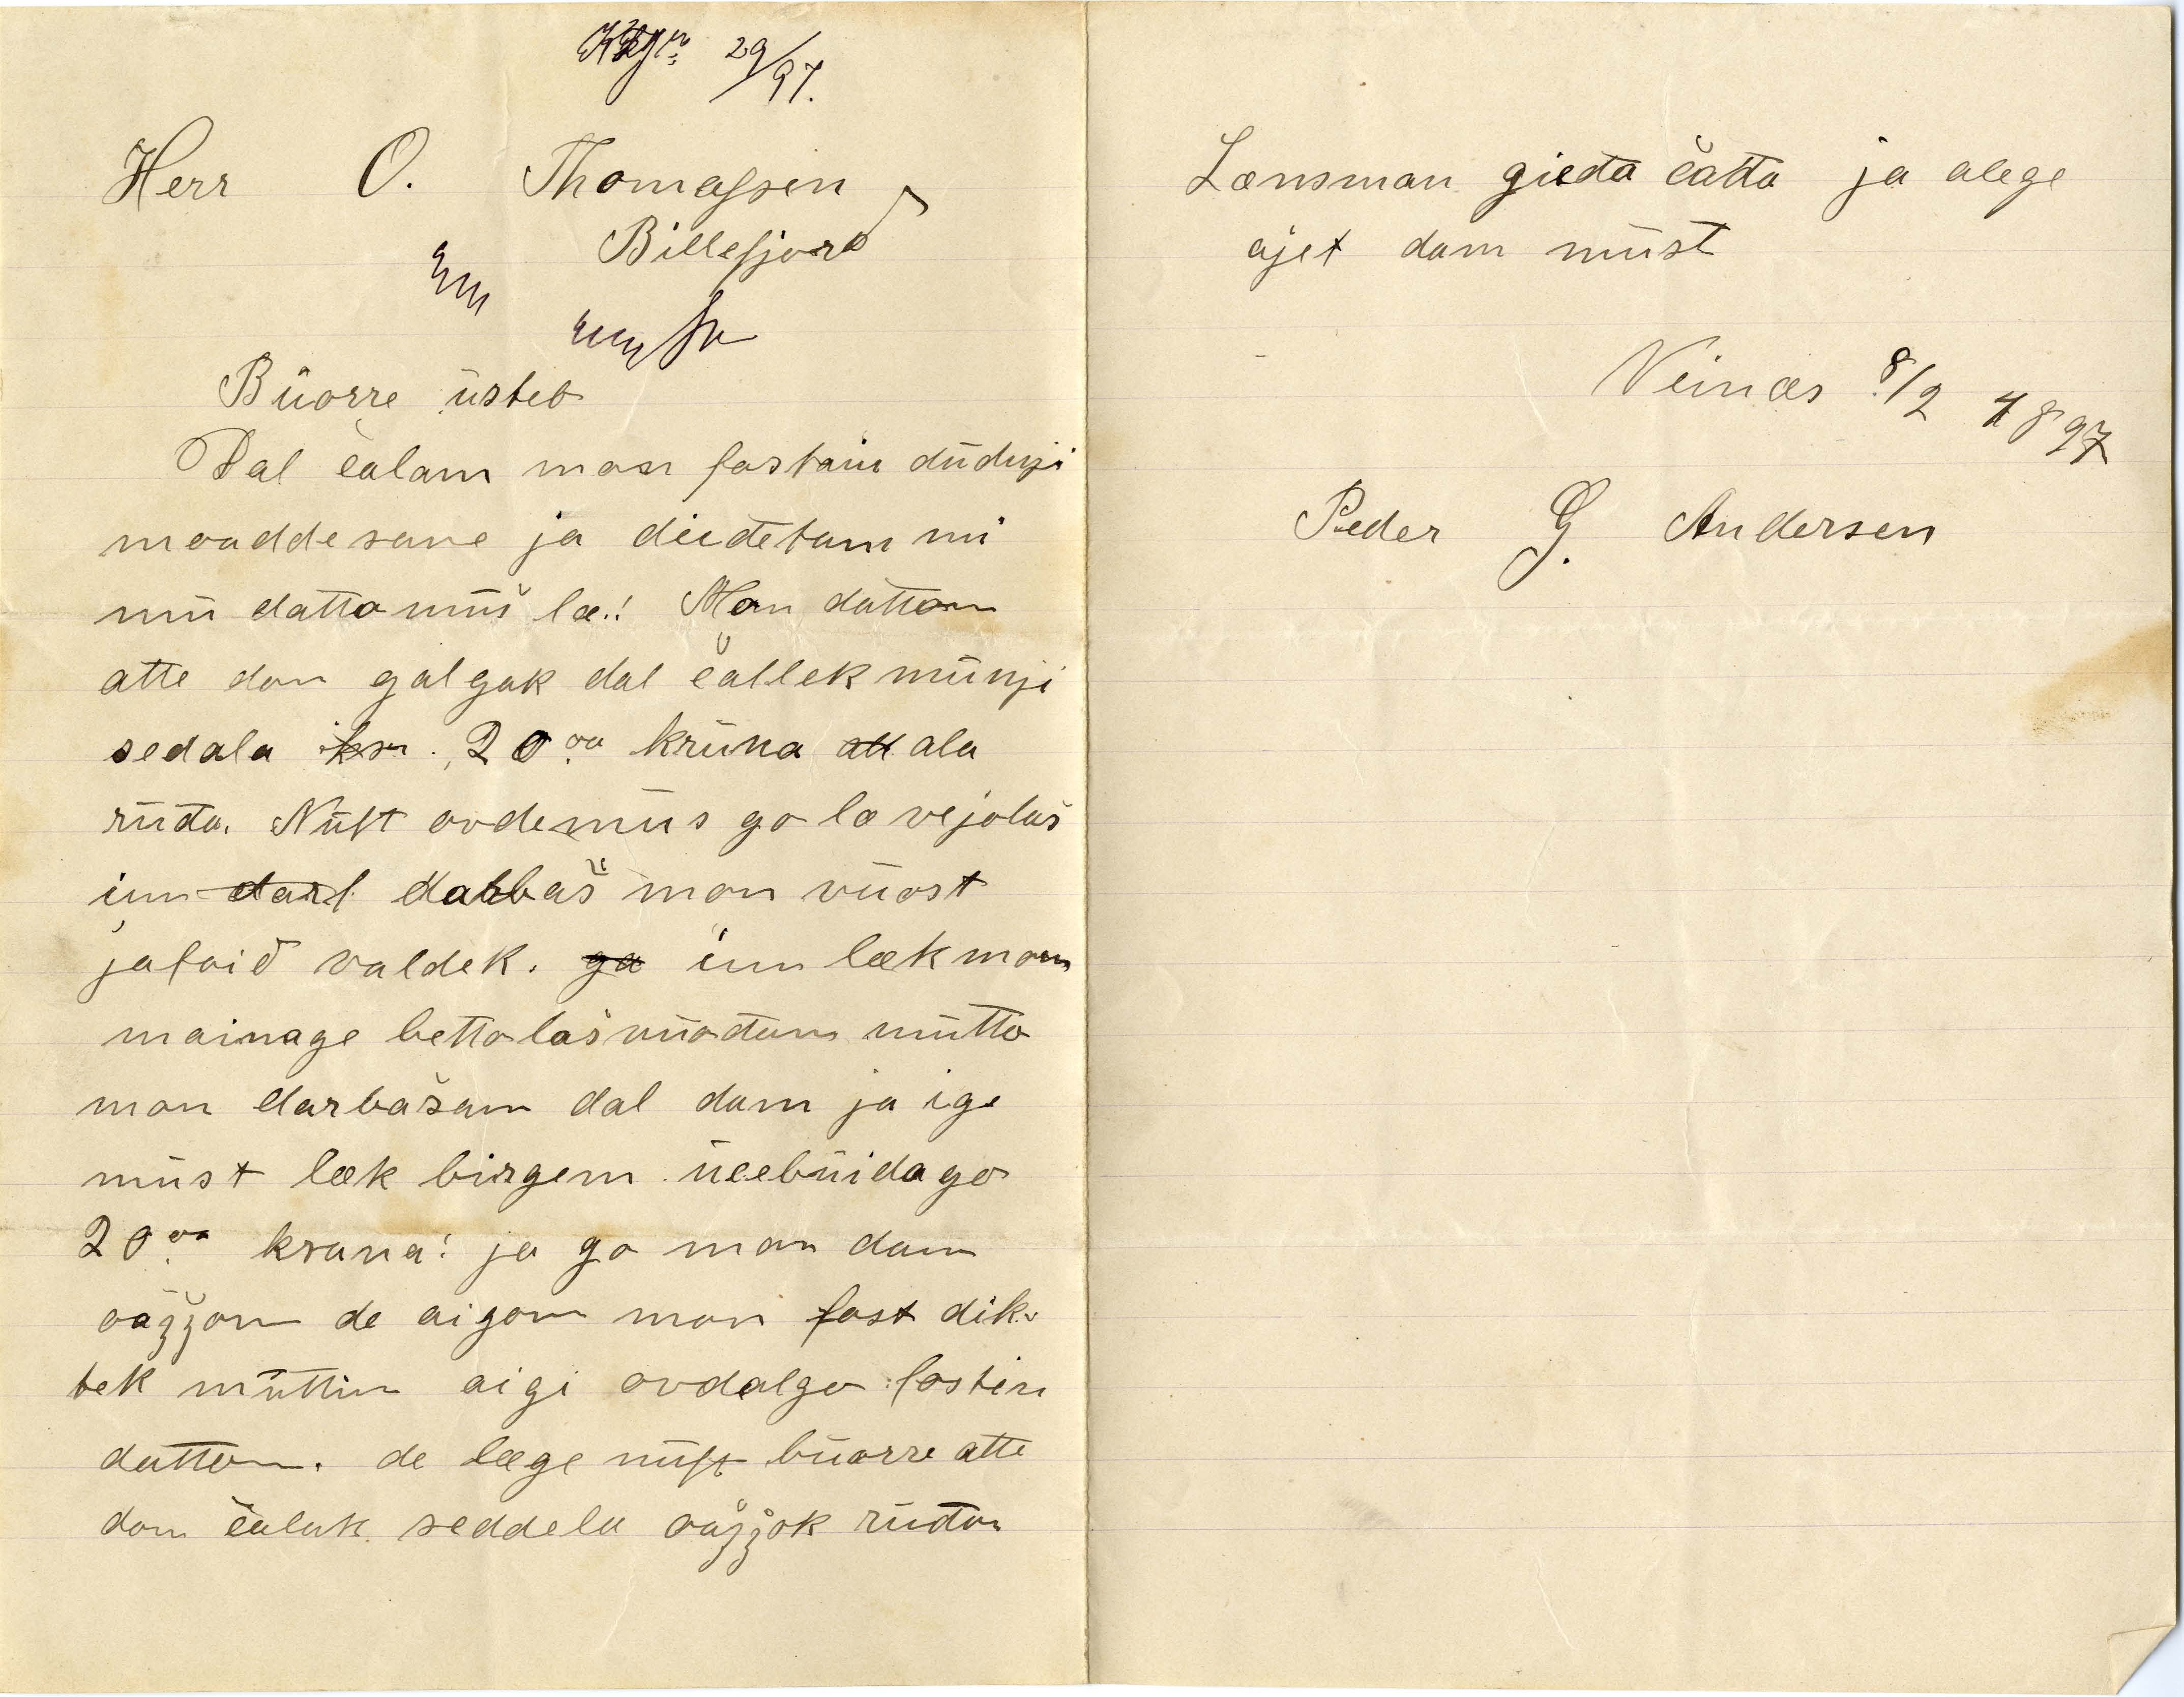 29/97.
Herr O. Thomassen
Billefjord
Büorre üsteb
Dal čalam mon fastain düdnji
moaddesane ja diedetam mi
mü datto müš læ.! Mon datton
atte don galgak dal čallek münji
sedala 20.00 krüna all ala
rüđa. Nüft ovdemüs go læ vejolaš
im darb darbaš mon vüost
jafoid valdek. ga im læk mon
mainage bettolašvüođam mütto
mon darbašam dal dam ja ige
müst læk birgem üccbüidago
20.00 krana! ja go mon dam
oažžom de aigom mon fast dik-
tek müttin aigi ovdalgo fastin
dattom. de læge nüft büorre atte
don čaluk seddela oažžok rüđa
Lænsman gieđa čađa ja alege
ajet dam müst
Veinæs 8/2 1897
Peder G. Andersen